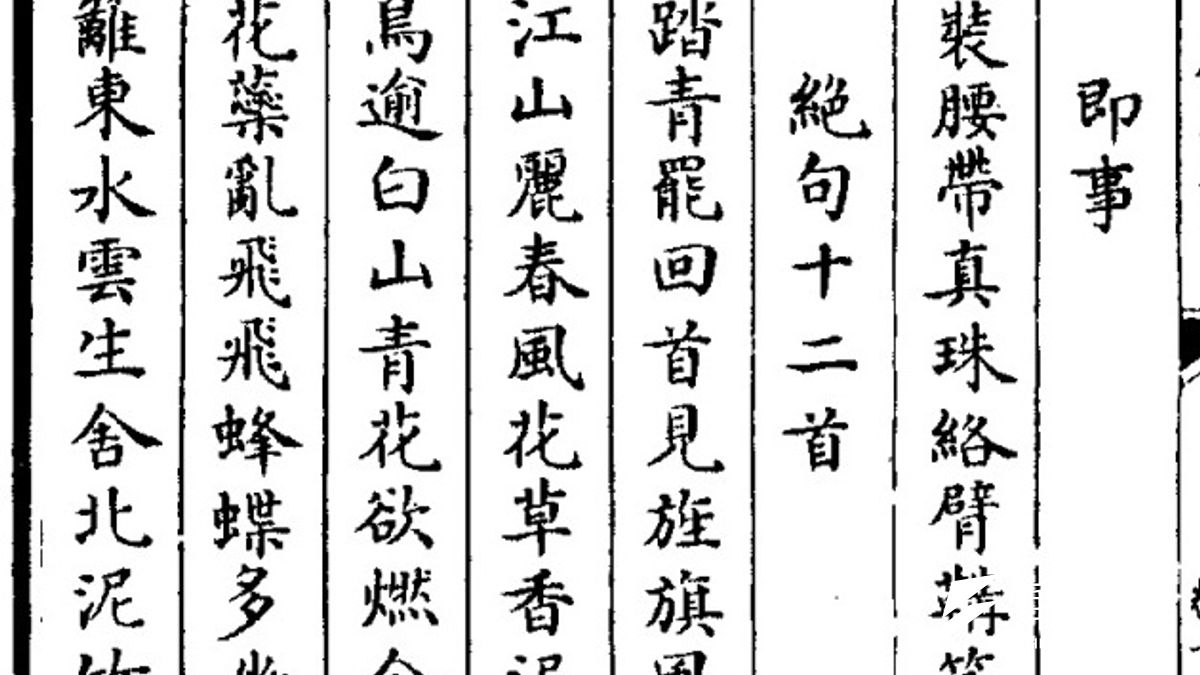 即事
裝腰帶真珠絡臂鞲
絕句十二首
踏青罷回首見旌旗風
江山麗春風花草香泥
鳥逾白山青花欲燃今
花蘂亂飛飛蜂蝶多幽
籬東水雲生舍北泥竹